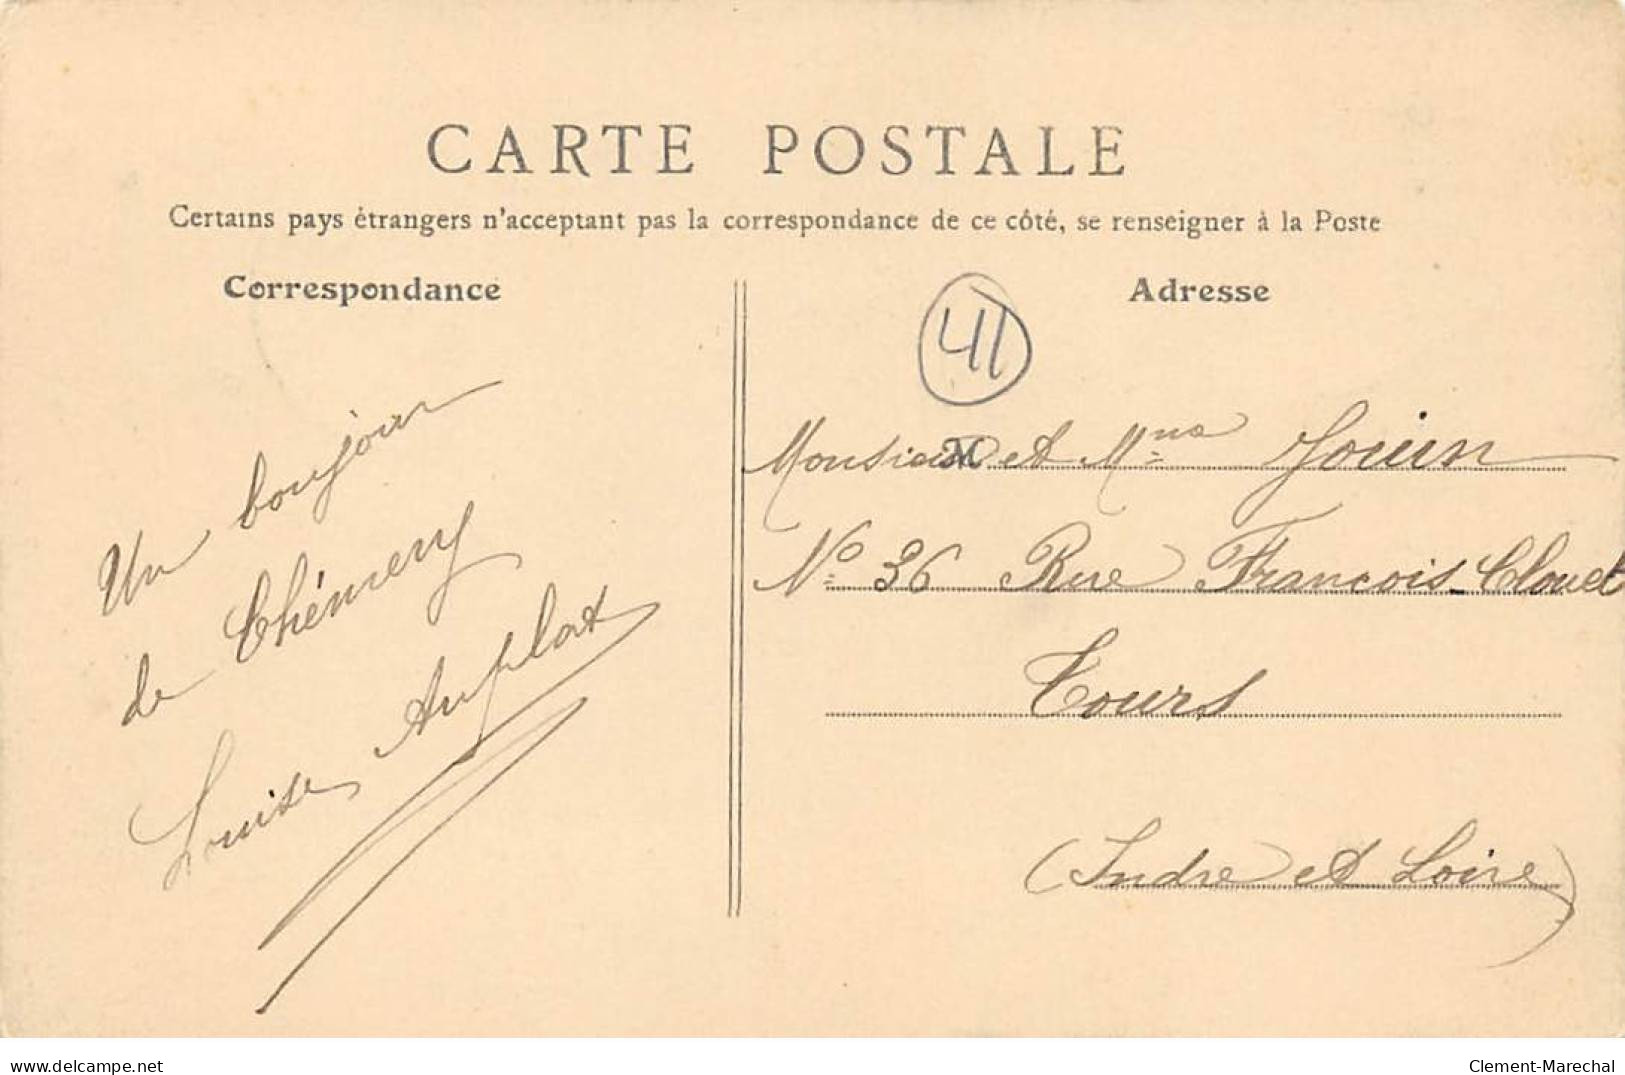 CARTE POSTALE
Certains pays étrangers n'acceptant pas la correspondance de ce côté, se renseigner à la Poste
Correspondance
Un bonjour
de Chémery
Louise Auplat
Adresse
41
Monsieur et Mme Jouin
No 36 Rue Francois Clouet
Tours
(Indre et Loire)
www.delcampe.net
Clement-Marechal